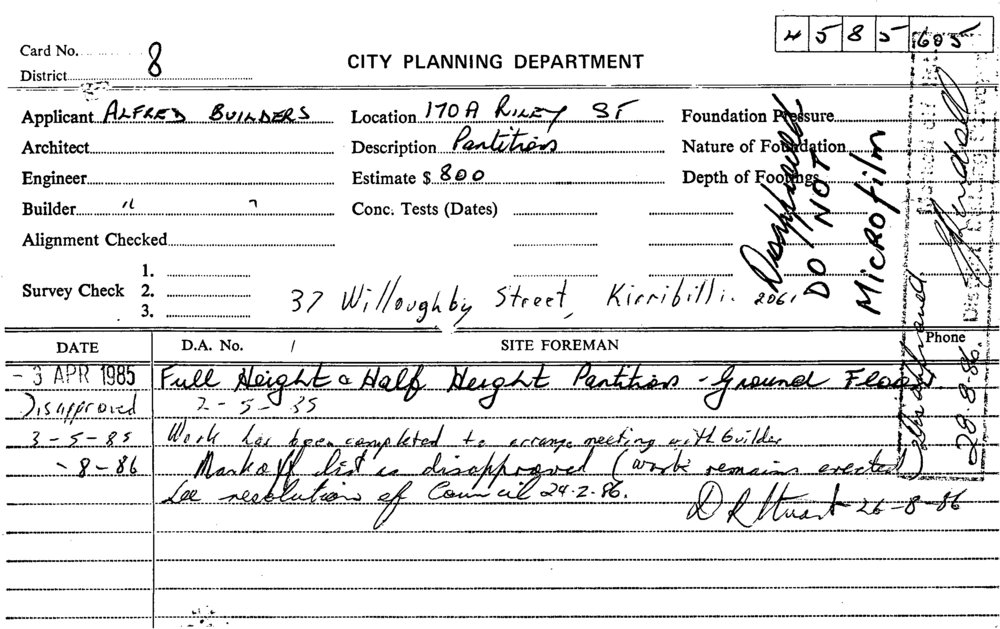 4 5 8 5 605
Card No. 8
District
CITY PLANNING DEPARTMENT
Applicant ALFRED BUILDERS
Location 170A RILEY ST
Foundation Pressure
Architect
Description Partitions
Nature of Foundation
Engineer
Estimate $ 800
Depth of Footings
Builder " "
Conc. Tests (Dates)
Alignment Checked
Survey Check 1.
2.
3.
37 Willoughby Street, Kirribilli. 2061
Disapproved
DO NOT
MICROFILM
Disapproved
28-8-86.
DATE
D.A. No. /
SITE FOREMAN
Phone
- 3 APR 1985 Full Height & Half Height Partitions - Ground Floor.
Disapproved 2-5-85
3-5-85 Work has been completed to arrange meeting with builder
-8-86 Mark off list as disapproved (work remains erected)
See resolution of Council 24.2.86.
D R Stuart 26-8-86